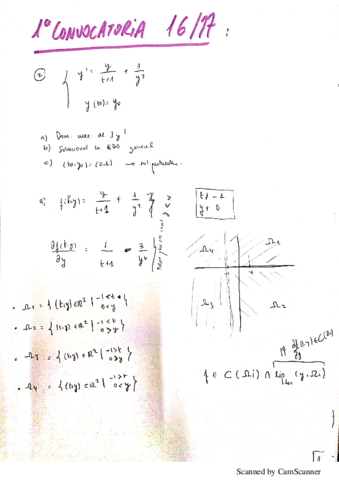 1º CONVOCATORIA 16/17:
② { y' = y/(t+1) + 1/y³
y(t0) = y0
a) Dom. max. de ∃ y !
b) Solucionar la EDO general
c) (t0, y0) = (0,1) →
a) f(t,y) = y/(t+1) + 1/y³
t ≠ -1
y ≠ 0
∂f(t,y)/∂y = 1/(t+1) - 3/y⁴
Ω4 Ω1
Ω3 Ω2
• Ω1 = {(t,y) ∈ ℝ² | -1<t, 0<y}
• Ω2 = {(t,y) ∈ ℝ² | -1<t, 0>y}
• Ω3 = {(t,y) ∈ ℝ² | -1>t, 0>y}
• Ω4 = {(t,y) ∈ ℝ² | -1>t, 0<y}
∂f/∂y (t,y) ∈ C(Ωi)
f ∈ C(Ωi) ∩ Lip loc (y, Ωi)
Scanned by CamScanner